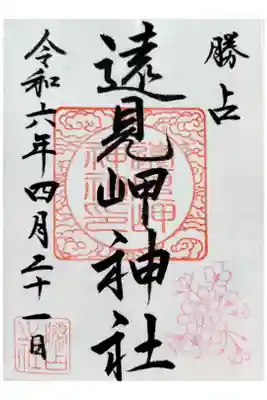 勝占
遠見岬神社
令和六年四月二十一日